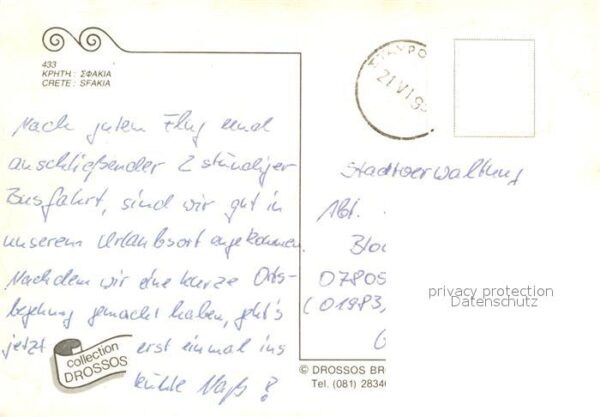 433
ΚΡΗΤΗ : ΣΦΑΚΙΑ
CRETE : SFAKIA
Nach gutem Flug und
anschließender 2 stündiger
Busfahrt, sind wir gut in
unserem Urlaubsort angekommen.
Nachdem wir eine kurze Orts-
begehung gemacht haben, geht's
jetzt erst einmal ins
kühle Naß!
collection
DROSSOS
ΣΤΑΥΡΟ
21 VI 9
Stadtverwaltung
Abt.
0780
(01983,
privacy protection
Datenschutz
© DROSSOS BR
Tel. (081) 2834